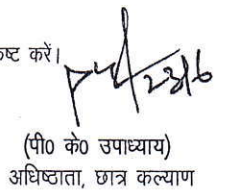 करें।
23/6
(पी० के० उपाध्याय)
अधिष्ठाता, छात्र कल्याण